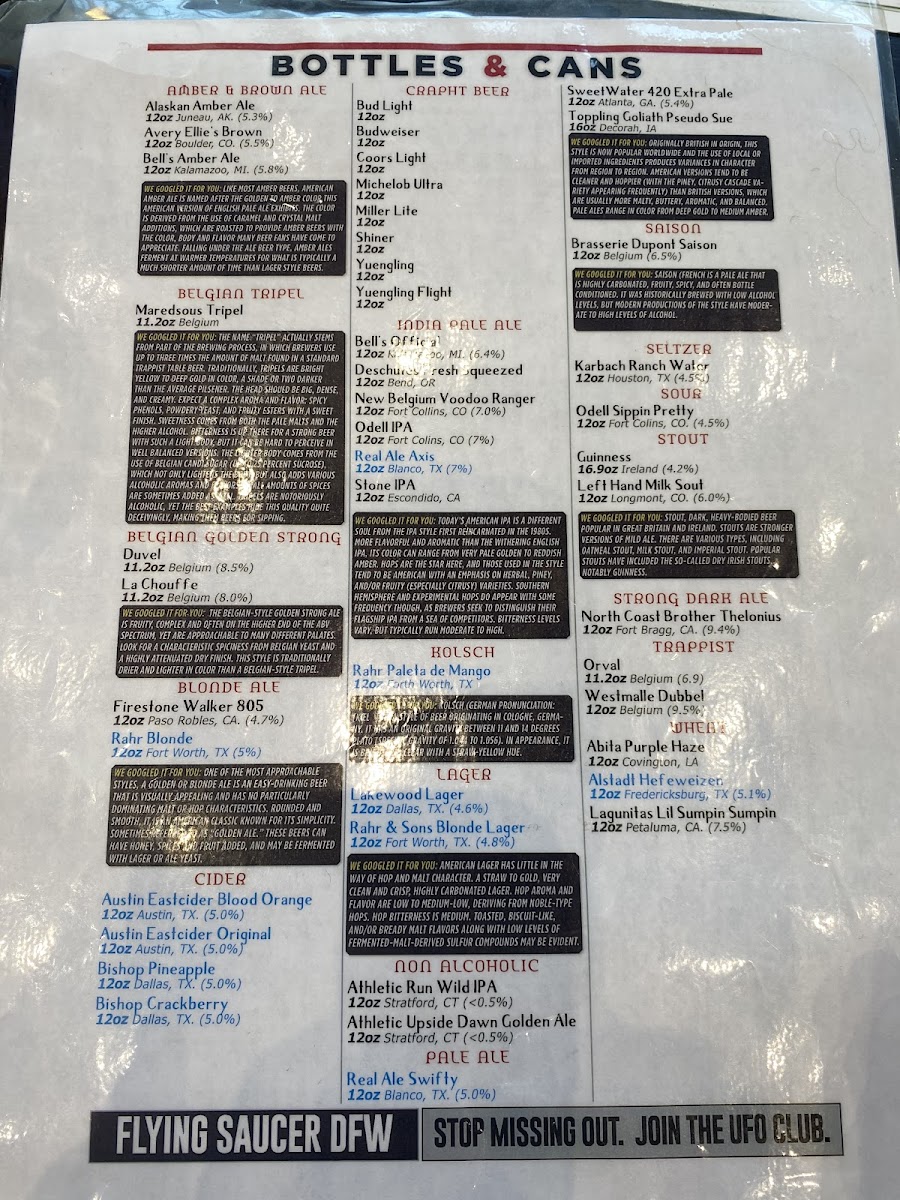 BOTTLES & CANS
AMBER & BROWN ALE
Alaskan Amber Ale
12oz Juneau, AK. (5.3%)
Avery Ellie's Brown
12oz Boulder, CO. (5.5%)
Bell's Amber Ale
12oz Kalamazoo, MI. (5.8%)
WE GOOGLED IT FOR YOU: LIKE MOST AMBER BEERS, AMERICAN
AMBER ALE IS NAMED AFTER THE GOLDEN TO AMBER COLOR THIS
AMERICAN VERSION OF ENGLISH PALE ALE EXHIBITS. THE COLOR
IS DERIVED FROM THE USE OF CARAMEL AND CRYSTAL MALT
ADDITIONS, WHICH ARE ROASTED TO PROVIDE AMBER BEERS WITH
THE COLOR, BODY AND FLAVOR MANY BEER FANS HAVE COME TO
APPRECIATE. FALLING UNDER THE ALE BEER TYPE, AMBER ALES
FERMENT AT WARMER TEMPERATURES FOR WHAT IS TYPICALLY A
MUCH SHORTER AMOUNT OF TIME THAN LAGER STYLE BEERS.
BELGIAN TRIPEL
Maredsous Tripel
11.2oz Belgium
WE GOOGLED IT FOR YOU: THE NAME "TRIPEL" ACTUALLY STEMS
FROM PART OF THE BREWING PROCESS, IN WHICH BREWERS USE
UP TO THREE TIMES THE AMOUNT OF MALT FOUND IN A STANDARD
TRAPPIST TABLE BEER. TRADITIONALLY, TRIPELS ARE BRIGHT
YELLOW TO DEEP GOLD IN COLOR, A SHADE OR TWO DARKER
THAN THE AVERAGE PILSENER. THE HEAD SHOULD BE BIG, DENSE,
AND CREAMY. EXPECT A COMPLEX AROMA AND FLAVOR: SPICY
PHENOLS, POWDERY YEAST, AND FRUITY ESTERS WITH A SWEET
FINISH. SWEETNESS COMES FROM BOTH THE PALE MALTS AND THE
HIGHER ALCOHOL. BITTERNESS IS UP THERE FOR A STRONG BEER
WITH SUCH A LIGHT BODY, BUT IT CAN BE HARD TO PERCEIVE IN
WELL BALANCED VERSIONS. THE LIGHTER BODY COMES FROM THE
USE OF BELGIAN CANDI SUGAR PERCENT SUCROSE),
WHICH NOT ONLY LIGHTENS THE BUT ALSO ADDS VARIOUS
ALCOHOLIC AROMAS AND SMALL AMOUNTS OF SPICES
ARE SOMETIMES ADDED TRIPELS ARE NOTORIOUSLY
ALCOHOLIC, YET THE BEST EXAMPLES HIDE THIS QUALITY QUITE
DECEIVINGLY, MAKING THEM BEERS FOR SIPPING.
BELGIAN GOLDEN STRONG
Duvel
11.2oz Belgium (8.5%)
La Chouffe
11.2oz Belgium (8.0%)
WE GOOGLED IT FOR YOU: THE BELGIAN-STYLE GOLDEN STRONG ALE
IS FRUITY, COMPLEX AND OFTEN ON THE HIGHER END OF THE ABV
SPECTRUM, YET ARE APPROACHABLE TO MANY DIFFERENT PALATES.
LOOK FOR A CHARACTERISTIC SPICINESS FROM BELGIAN YEAST AND
A HIGHLY ATTENUATED DRY FINISH. THIS STYLE IS TRADITIONALLY
DRIER AND LIGHTER IN COLOR THAN A BELGIAN-STYLE TRIPEL.
BLONDE ALE
Firestone Walker 805
12oz Paso Robles, CA. (4.7%)
Rahr Blonde
12oz Fort Worth, TX (5%)
WE GOOGLED IT FOR YOU: ONE OF THE MOST APPROACHABLE
STYLES, A GOLDEN OR BLONDE ALE IS AN EASY-DRINKING BEER
THAT IS VISUALLY APPEALING AND HAS NO PARTICULARLY
DOMINATING MALT OR HOP CHARACTERISTICS. ROUNDED AND
SMOOTH, IT IS AN AMERICAN CLASSIC KNOWN FOR ITS SIMPLICITY.
SOMETIMES REFERRED TO AS "GOLDEN ALE." THESE BEERS CAN
HAVE HONEY, SPICES AND FRUIT ADDED, AND MAY BE FERMENTED
WITH LAGER OR ALE YEAST.
CIDER
Austin Eastcider Blood Orange
12oz Austin, TX. (5.0%)
Austin Eastcider Original
12oz Austin, TX. (5.0%)
Bishop Pineapple
12oz Dallas, TX. (5.0%)
Bishop Crackberry
12oz Dallas, TX. (5.0%)
CRAPHT BEER
Bud Light
12oz
Budweiser
12oz
Coors Light
12oz
Michelob Ultra
12oz
Miller Lite
12oz
Shiner
12oz
Yuengling
12oz
Yuengling Flight
12oz
INDIA PALE ALE
Bell's Official
12oz Kalamazoo, MI. (6.4%)
Deschutes Fresh Squeezed
12oz Bend, OR
New Belgium Voodoo Ranger
12oz Fort Collins, CO (7.0%)
Odell IPA
12oz Fort Colins, CO (7%)
Real Ale Axis
12oz Blanco, TX (7%)
Stone IPA
12oz Escondido, CA
WE GOOGLED IT FOR YOU: TODAY'S AMERICAN IPA IS A DIFFERENT
SOUL FROM THE IPA STYLE FIRST REINCARNATED IN THE 1980S.
MORE FLAVORFUL AND AROMATIC THAN THE WITHERING ENGLISH
IPA, ITS COLOR CAN RANGE FROM VERY PALE GOLDEN TO REDDISH
AMBER. HOPS ARE THE STAR HERE, AND THOSE USED IN THE STYLE
TEND TO BE AMERICAN WITH AN EMPHASIS ON HERBAL, PINEY,
AND/OR FRUITY (ESPECIALLY CITRUSY) VARIETIES. SOUTHERN
HEMISPHERE AND EXPERIMENTAL HOPS DO APPEAR WITH SOME
FREQUENCY THOUGH, AS BREWERS SEEK TO DISTINGUISH THEIR
FLAGSHIP IPA FROM A SEA OF COMPETITORS. BITTERNESS LEVELS
VARY, BUT TYPICALLY RUN MODERATE TO HIGH.
KOLSCH
Rahr Paleta de Mango
12oz Forth Worth, TX
WE GOOGLED IT FOR YOU: KOLSCH (GERMAN PRONUNCIATION:
STYLE OF BEER ORIGINATING IN COLOGNE, GERMA-
NY. IT HAS AN ORIGINAL GRAVITY BETWEEN 11 AND 14 DEGREES
PLATO GRAVITY OF 1.044 TO 1.056). IN APPEARANCE, IT
IS WITH A STRAW-YELLOW HUE.
LAGER
Lakewood Lager
12oz Dallas, TX. (4.6%)
Rahr & Sons Blonde Lager
12oz Fort Worth, TX. (4.8%)
WE GOOGLED IT FOR YOU: AMERICAN LAGER HAS LITTLE IN THE
WAY OF HOP AND MALT CHARACTER. A STRAW TO GOLD, VERY
CLEAN AND CRISP, HIGHLY CARBONATED LAGER. HOP AROMA AND
FLAVOR ARE LOW TO MEDIUM-LOW, DERIVING FROM NOBLE-TYPE
HOPS. HOP BITTERNESS IS MEDIUM. TOASTED, BISCUIT-LIKE,
AND/OR BREADY MALT FLAVORS ALONG WITH LOW LEVELS OF
FERMENTED-MALT-DERIVED SULFUR COMPOUNDS MAY BE EVIDENT.
NON ALCOHOLIC
Athletic Run Wild IPA
12oz Stratford, CT (<0.5%)
Athletic Upside Dawn Golden Ale
12oz Stratford, CT (<0.5%)
PALE ALE
Real Ale Swifty
12oz Blanco, TX. (5.0%)
SweetWater 420 Extra Pale
12oz Atlanta, GA. (5.4%)
Toppling Goliath Pseudo Sue
16oz Decorah, IA
WE GOOGLED IT FOR YOU: ORIGINALLY BRITISH IN ORIGIN, THIS
STYLE IS NOW POPULAR WORLDWIDE AND THE USE OF LOCAL OR
IMPORTED INGREDIENTS PRODUCES VARIANCES IN CHARACTER
FROM REGION TO REGION. AMERICAN VERSIONS TEND TO BE
CLEANER AND HOPPIER (WITH THE PINEY, CITRUSY CASCADE VA-
RIETY APPEARING FREQUENTLY) THAN BRITISH VERSIONS, WHICH
ARE USUALLY MORE MALTY, BUTTERY, AROMATIC, AND BALANCED.
PALE ALES RANGE IN COLOR FROM DEEP GOLD TO MEDIUM AMBER.
SAISON
Brasserie Dupont Saison
12oz Belgium (6.5%)
WE GOOGLED IT FOR YOU: SAISON (FRENCH IS A PALE ALE THAT
IS HIGHLY CARBONATED, FRUITY, SPICY, AND OFTEN BOTTLE
CONDITIONED. IT WAS HISTORICALLY BREWED WITH LOW ALCOHOL
LEVELS, BUT MODERN PRODUCTIONS OF THE STYLE HAVE MODER-
ATE TO HIGH LEVELS OF ALCOHOL.
SELTZER
Karbach Ranch Water
12oz Houston, TX (4.5%)
SOUR
Odell Sippin Pretty
12oz Fort Colins, CO. (4.5%)
STOUT
Guinness
16.9oz Ireland (4.2%)
Left Hand Milk Sout
12oz Longmont, CO. (6.0%)
WE GOOGLED IT FOR YOU: STOUT, DARK, HEAVY-BODIED BEER
POPULAR IN GREAT BRITAIN AND IRELAND. STOUTS ARE STRONGER
VERSIONS OF MILD ALE. THERE ARE VARIOUS TYPES, INCLUDING
OATMEAL STOUT, MILK STOUT, AND IMPERIAL STOUT. POPULAR
STOUTS HAVE INCLUDED THE SO-CALLED DRY IRISH STOUTS,
NOTABLY GUINNESS.
STRONG DARK ALE
North Coast Brother Thelonius
12oz Fort Bragg, CA. (9.4%)
TRAPPIST
Orval
11.2oz Belgium (6.9)
Westmalle Dubbel
12oz Belgium (9.5%)
WHEAT
Abita Purple Haze
12oz Covington, LA
Alstadt Hefeweizen
12oz Fredericksburg, TX (5.1%)
Lagunitas Lil Sumpin Sumpin
12oz Petaluma, CA. (7.5%)
FLYING SAUCER DFW
STOP MISSING OUT. JOIN THE UFO CLUB.